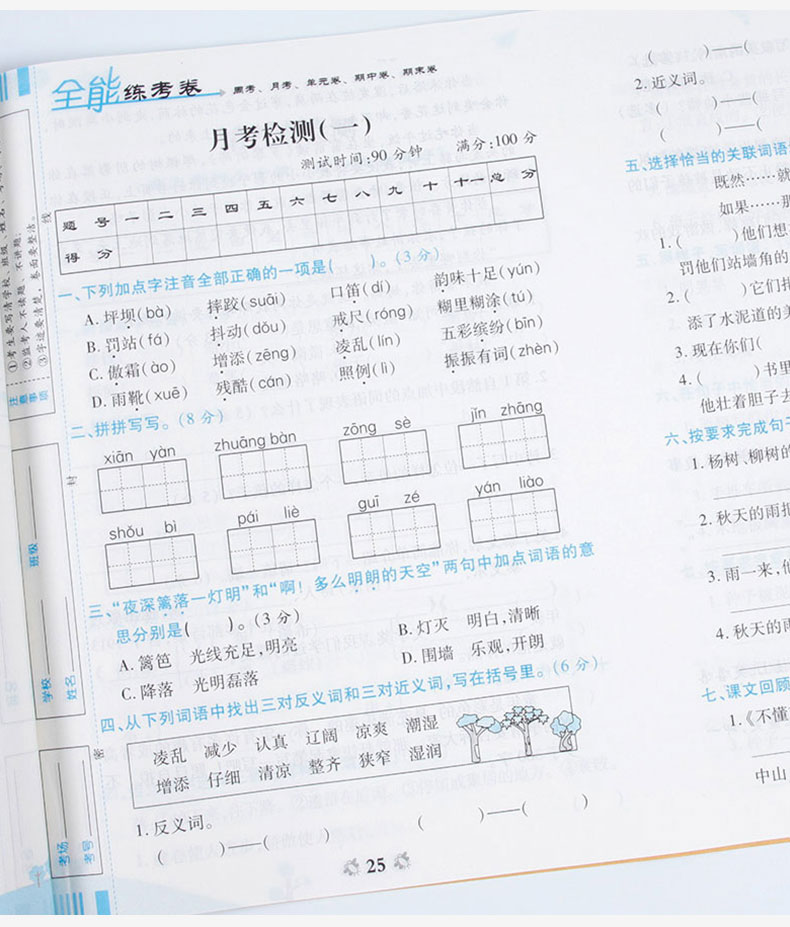 全能练考卷 周考、月考、单元卷、期中卷、期末卷
月考检测(一)
测试时间:90分钟 满分:100分
题号 一 二 三 四 五 六 七 八 九 十 十一 总分
得分
一、下列加点字注音全部正确的一项是( )。(3分)
A.坪坝(bà) 摔跤(suāi) 口笛(dí) 韵味十足(yún)
B.罚站(fá) 抖动(dǒu) 戒尺(róng) 糊里糊涂(tú)
C.傲霜(ào) 增添(zēng) 凌乱(lín) 五彩缤纷(bīn)
D.雨靴(xuē) 残酷(cán) 照例(lì) 振振有词(zhèn)
二、拼拼写写。(8分)
xiān yàn zhuāng bàn zōng sè jīn zhāng
shǒu bì pái liè guī zé yán liào
三、“夜深篱落一灯明”和“啊！多么明朗的天空”两句中加点词语的意
思分别是( )。(3分)
A.篱笆 光线充足,明亮 B.灯灭 明白,清晰
C.降落 光明磊落 D.围墙 乐观,开朗
四、从下列词语中找出三对反义词和三对近义词,写在括号里。(6分)
凌乱 减少 认真 辽阔 凉爽 潮湿
增添 仔细 清凉 整齐 狭窄 湿润
1.反义词。
( )—( ) ( )—( )
25
( )—( )
2.近义词。
( )—( )
( )—( )
五、选择恰当的关联词语
既然……就
如果……那
1.( )他们想
罚他们站墙角的
2.( )它们
添了水泥道的美
3.现在你们(
4.( )书里
他壮着胆子去
六、按要求完成句子
1.杨树、柳树的
2.秋天的雨把
3.雨一来,他
4.秋天的雨
七、课文回顾
1.《不懂
中山
①考生要写清学校、班级、姓名
②监考人不读题、不讲题;
③字迹要清楚,卷面要整洁。
注意事项
班级
学校
姓名
考场
考号
线
封
密